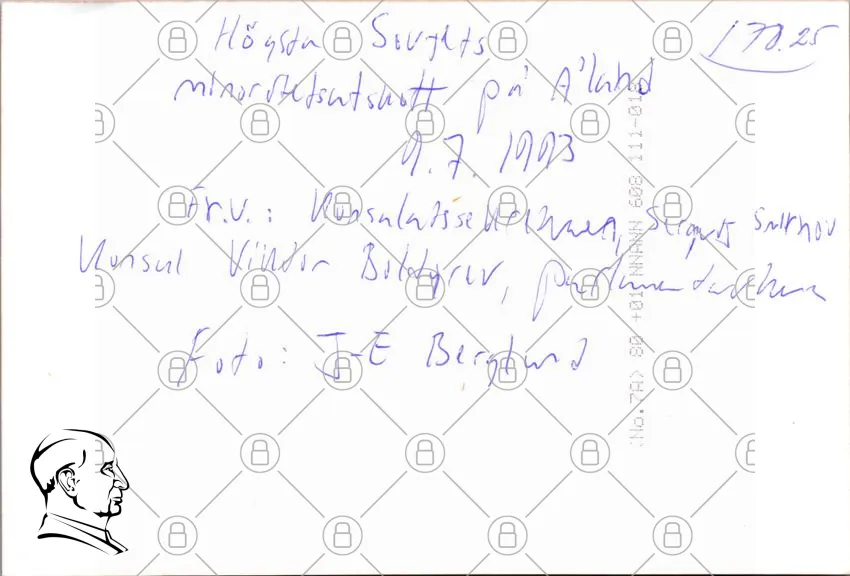 Högsta Sovjets
170.25
minoritetsutskott på Åland
9.7.1993
Fr.v.: Konsulatssekreteraren, Sergej Smirnov
Konsul Viktor Boldyrev, parlamentarikern
Foto: J-E Berglund
(No.7A> 80 +01 NNANN 608 111-01